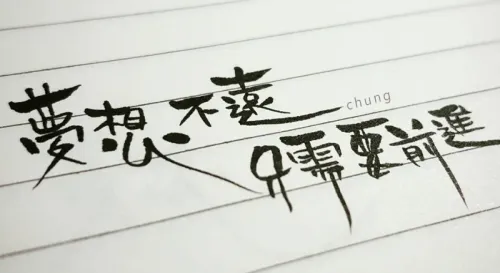 夢想不遠
chung
只需要前進